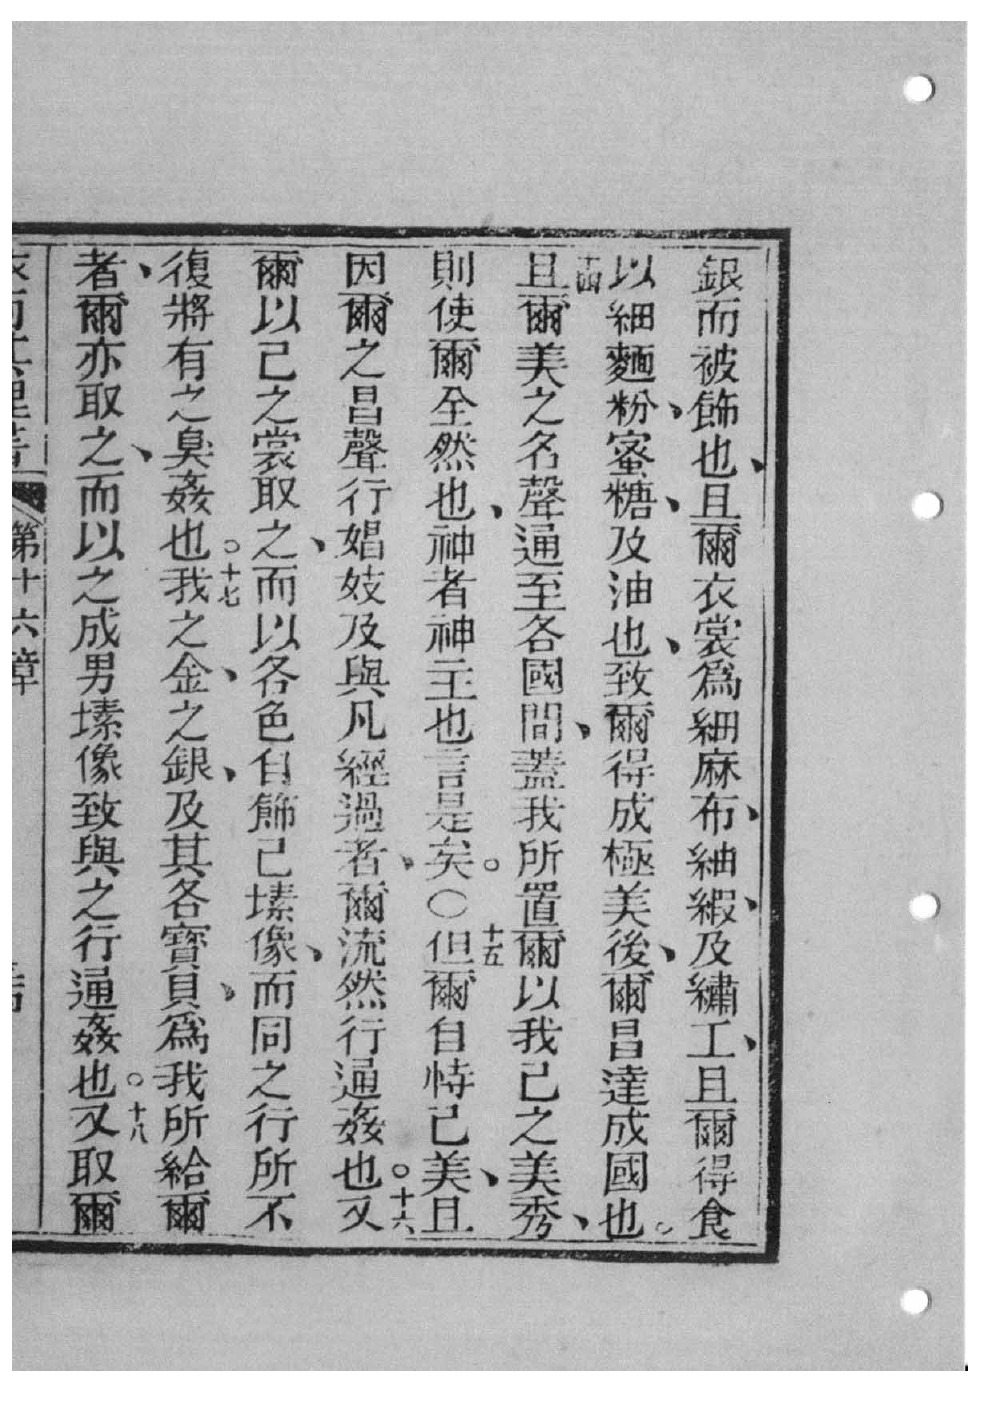 銀而被飾也、且爾衣裳爲細麻布、紬緞、及繡工、且爾得食
以細麵粉、蜜糖、及油也、致爾得成極美後、爾昌達成國也。
十四且爾美之名聲通至各國間、蓋我所置爾以我己之美秀、
則使爾全然也、神者神主也言是矣。○十五但爾自恃己美、且
因爾之昌聲行娼妓及與凡經過者、爾流然行通姦也。十六又
爾以己之裳取之、而以各色自飾己塐像、而同之行所不
復將有之臭姦也。十七我之金、之銀、及其各寶貝、爲我所給爾
者、爾亦取之、而以之成男塐像致與之行通姦也。十八又取爾
第十六章